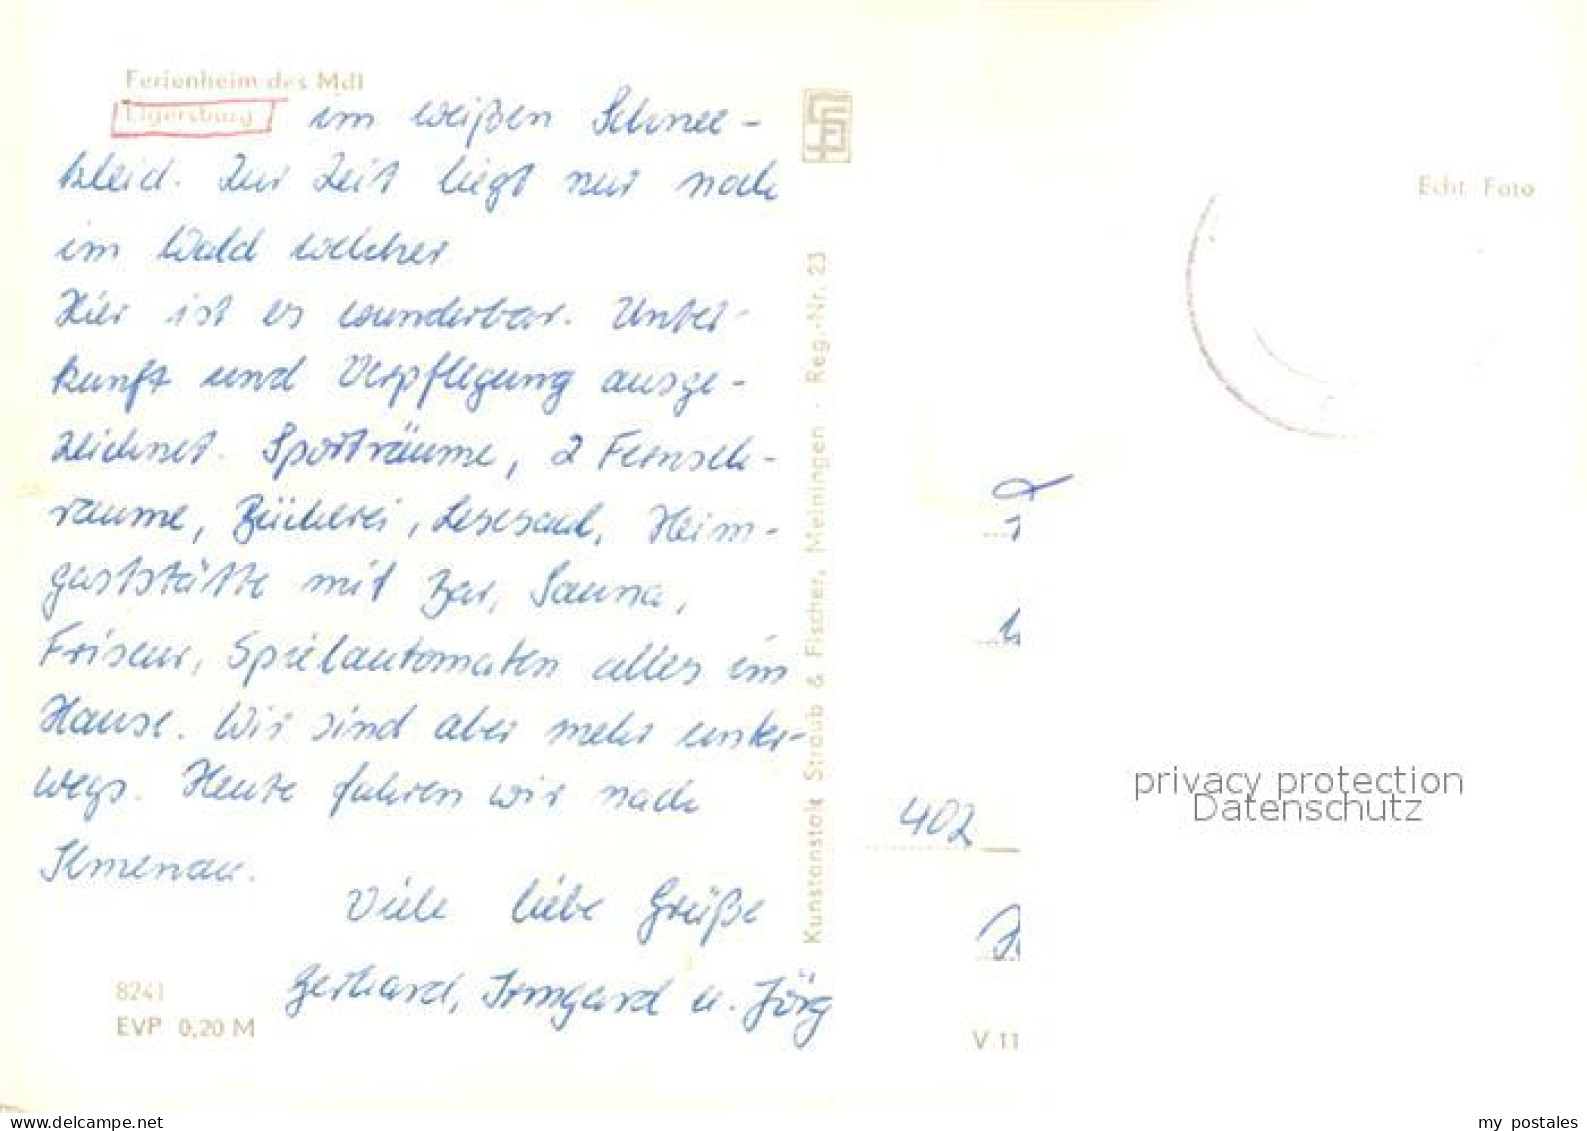 Ferienheim des MdI
Elgersburg im weißen Schnee-
kleid. Zur Zeit liegt nur noch
im Wald welcher
Hier ist es wunderbar. Unter-
kunft und Verpflegung ausge-
zeichnet. Sporträume, 2 Fernseh-
räume, Bücherei, Lesesaal, Heim-
gaststätte mit Bar, Sauna,
Friseur, Spielautomaten alles im
Hause. Wir sind aber mehr unter-
wegs. Heute fahren wir nach
Ilmenau.
Viele liebe Grüße
Gerhard, Irmgard u. Jörg
8241
EVP 0,20 M
Kunstanstalt Straub & Fischer, Meiningen · Reg.-Nr. 23
Echt Foto
402
V 11
privacy protection
Datenschutz
www.delcampe.net
my postales